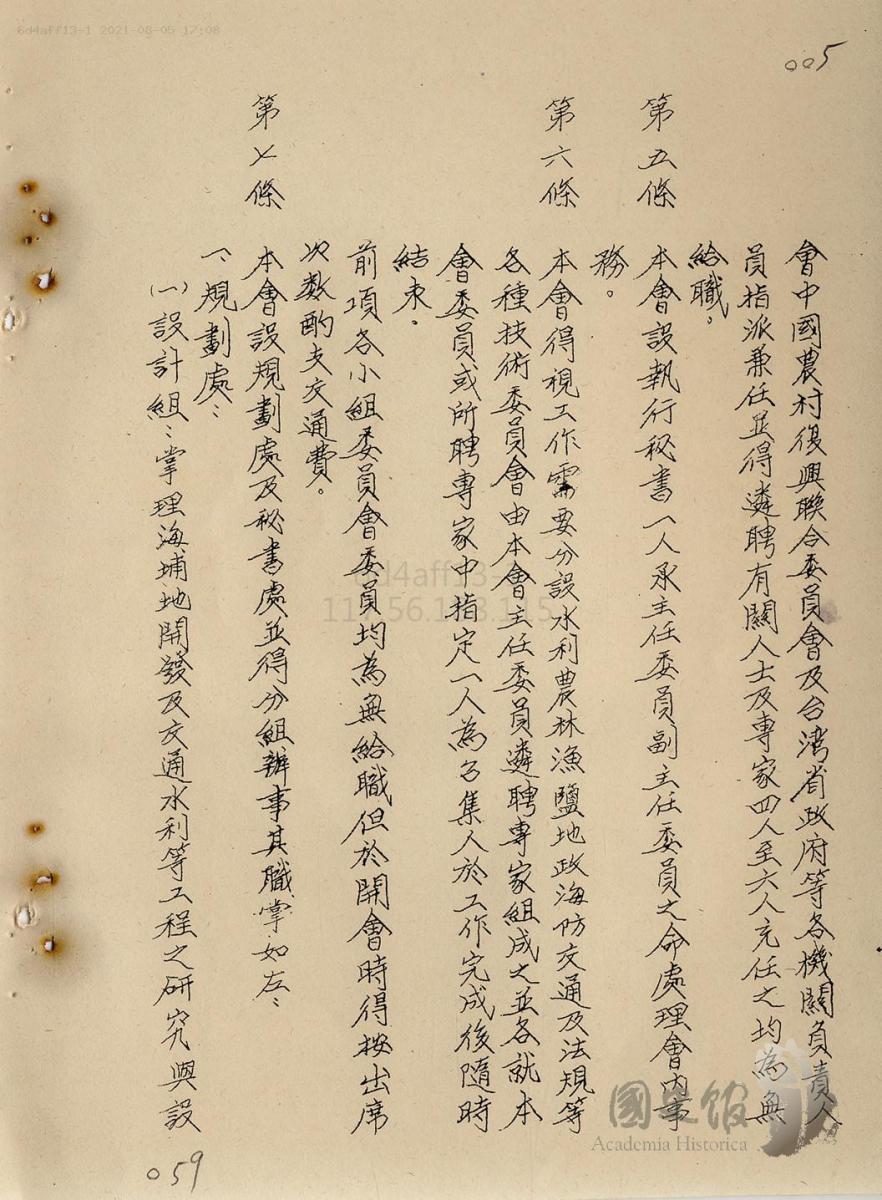 6d4aff13-1 2021-08-05 17:08
005
會中國農村復興聯合委員會及台湾省政府等各機關負責人
員指派兼任並得遴聘有關人士及專家四人至六人充任之均為無
給職。
第五條 本會設執行秘書一人承主任委員副主任委員之命處理會內事
務。
第六條 本會得視工作需要分設水利農林漁鹽地政海防交通及法規等
各種技術委員會由本會主任委員遴聘專家組成之並各就本
會委員或所聘專家中指定一人為召集人於工作完成後隨時
結束.
前項各小組委員會委員均為無給職但於開會時得按出席
次数酌支交通費。
第七條 本會設規劃處及秘書處並得分組辦事其職掌如左:
一、規劃處:
(一)設計組:掌理海埔地開發及交通水利等工程之研究與設
059
6d4aff13-
國史館
Academia Historica